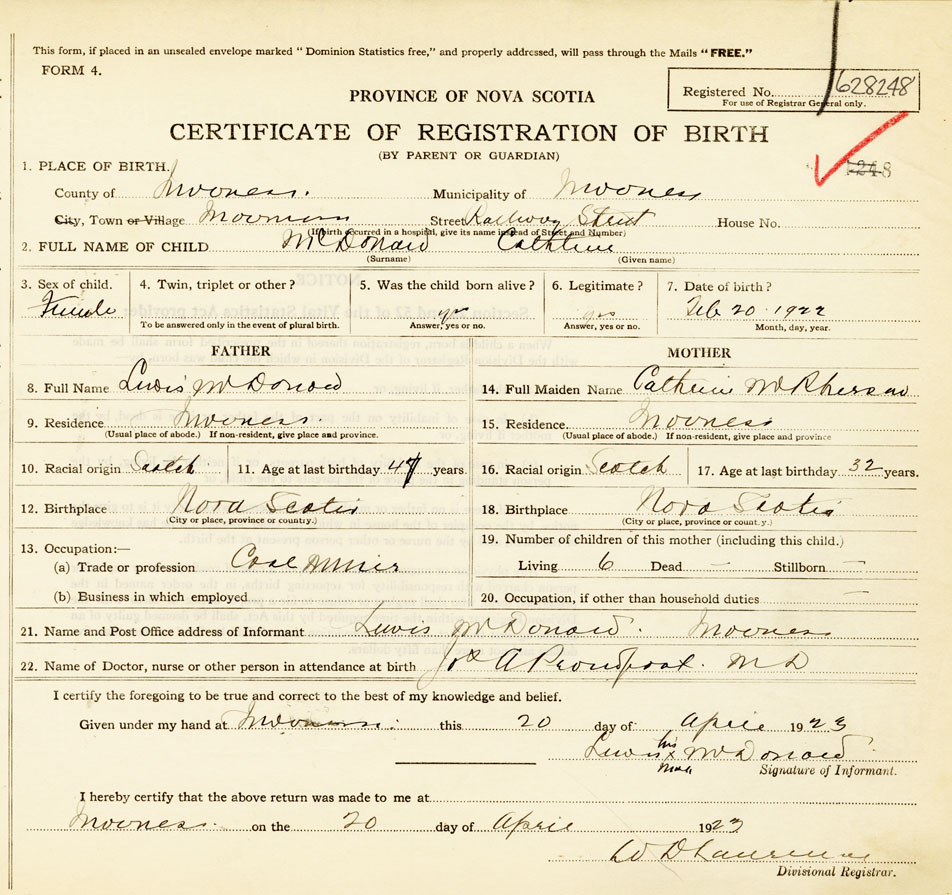 This form, if placed in an unsealed envelope marked "Dominion Statistics free," and properly addressed, will pass through the Mails "FREE."
FORM 4.
Registered No. 628248
For use of Registrar General only.
PROVINCE OF NOVA SCOTIA
CERTIFICATE OF REGISTRATION OF BIRTH
(BY PARENT OR GUARDIAN)
1248
1. PLACE OF BIRTH.
County of Inverness. Municipality of Inverness
City, Town or Village Inverness Street Railway Street House No.
(If birth occurred in a hospital, give its name instead of Street and Number)
2. FULL NAME OF CHILD McDonald Cathrine
(Surname) (Given name)
3. Sex of child. 4. Twin, triplet or other? 5. Was the child born alive? 6. Legitimate? 7. Date of birth?
Female yes yes Feb 20 1922
To be answered only in the event of plural birth. Answer, yes or no. Answer, yes or no. Month, day, year.
FATHER MOTHER
8. Full Name Lewis McDonald 14. Full Maiden Name Cathrine McPherson
9. Residence Inverness. 15. Residence. Inverness
(Usual place of abode.) If non-resident, give place and province. (Usual place of abode.) If non-resident, give place and province
10. Racial origin Scotch 11. Age at last birthday 47 years. 16. Racial origin Scotch 17. Age at last birthday 32 years.
12. Birthplace Nova Scotia 18. Birthplace Nova Scotia
(City or place, province or country.) (City or place, province or country.)
13. Occupation:— 19. Number of children of this mother (including this child.)
(a) Trade or profession Coal Miner Living 6 Dead — Stillborn —
(b) Business in which employed 20. Occupation, if other than household duties —
21. Name and Post Office address of Informant Lewis McDonald. Inverness
22. Name of Doctor, nurse or other person in attendance at birth A Proudfoot. M D
I certify the foregoing to be true and correct to the best of my knowledge and belief.
Given under my hand at Inverness. this 20 day of April 1923
Lewis his x mark McDonald
Signature of Informant.
I hereby certify that the above return was made to me at
Inverness. on the 20 day of April 1923
W D Lawrence
Divisional Registrar.